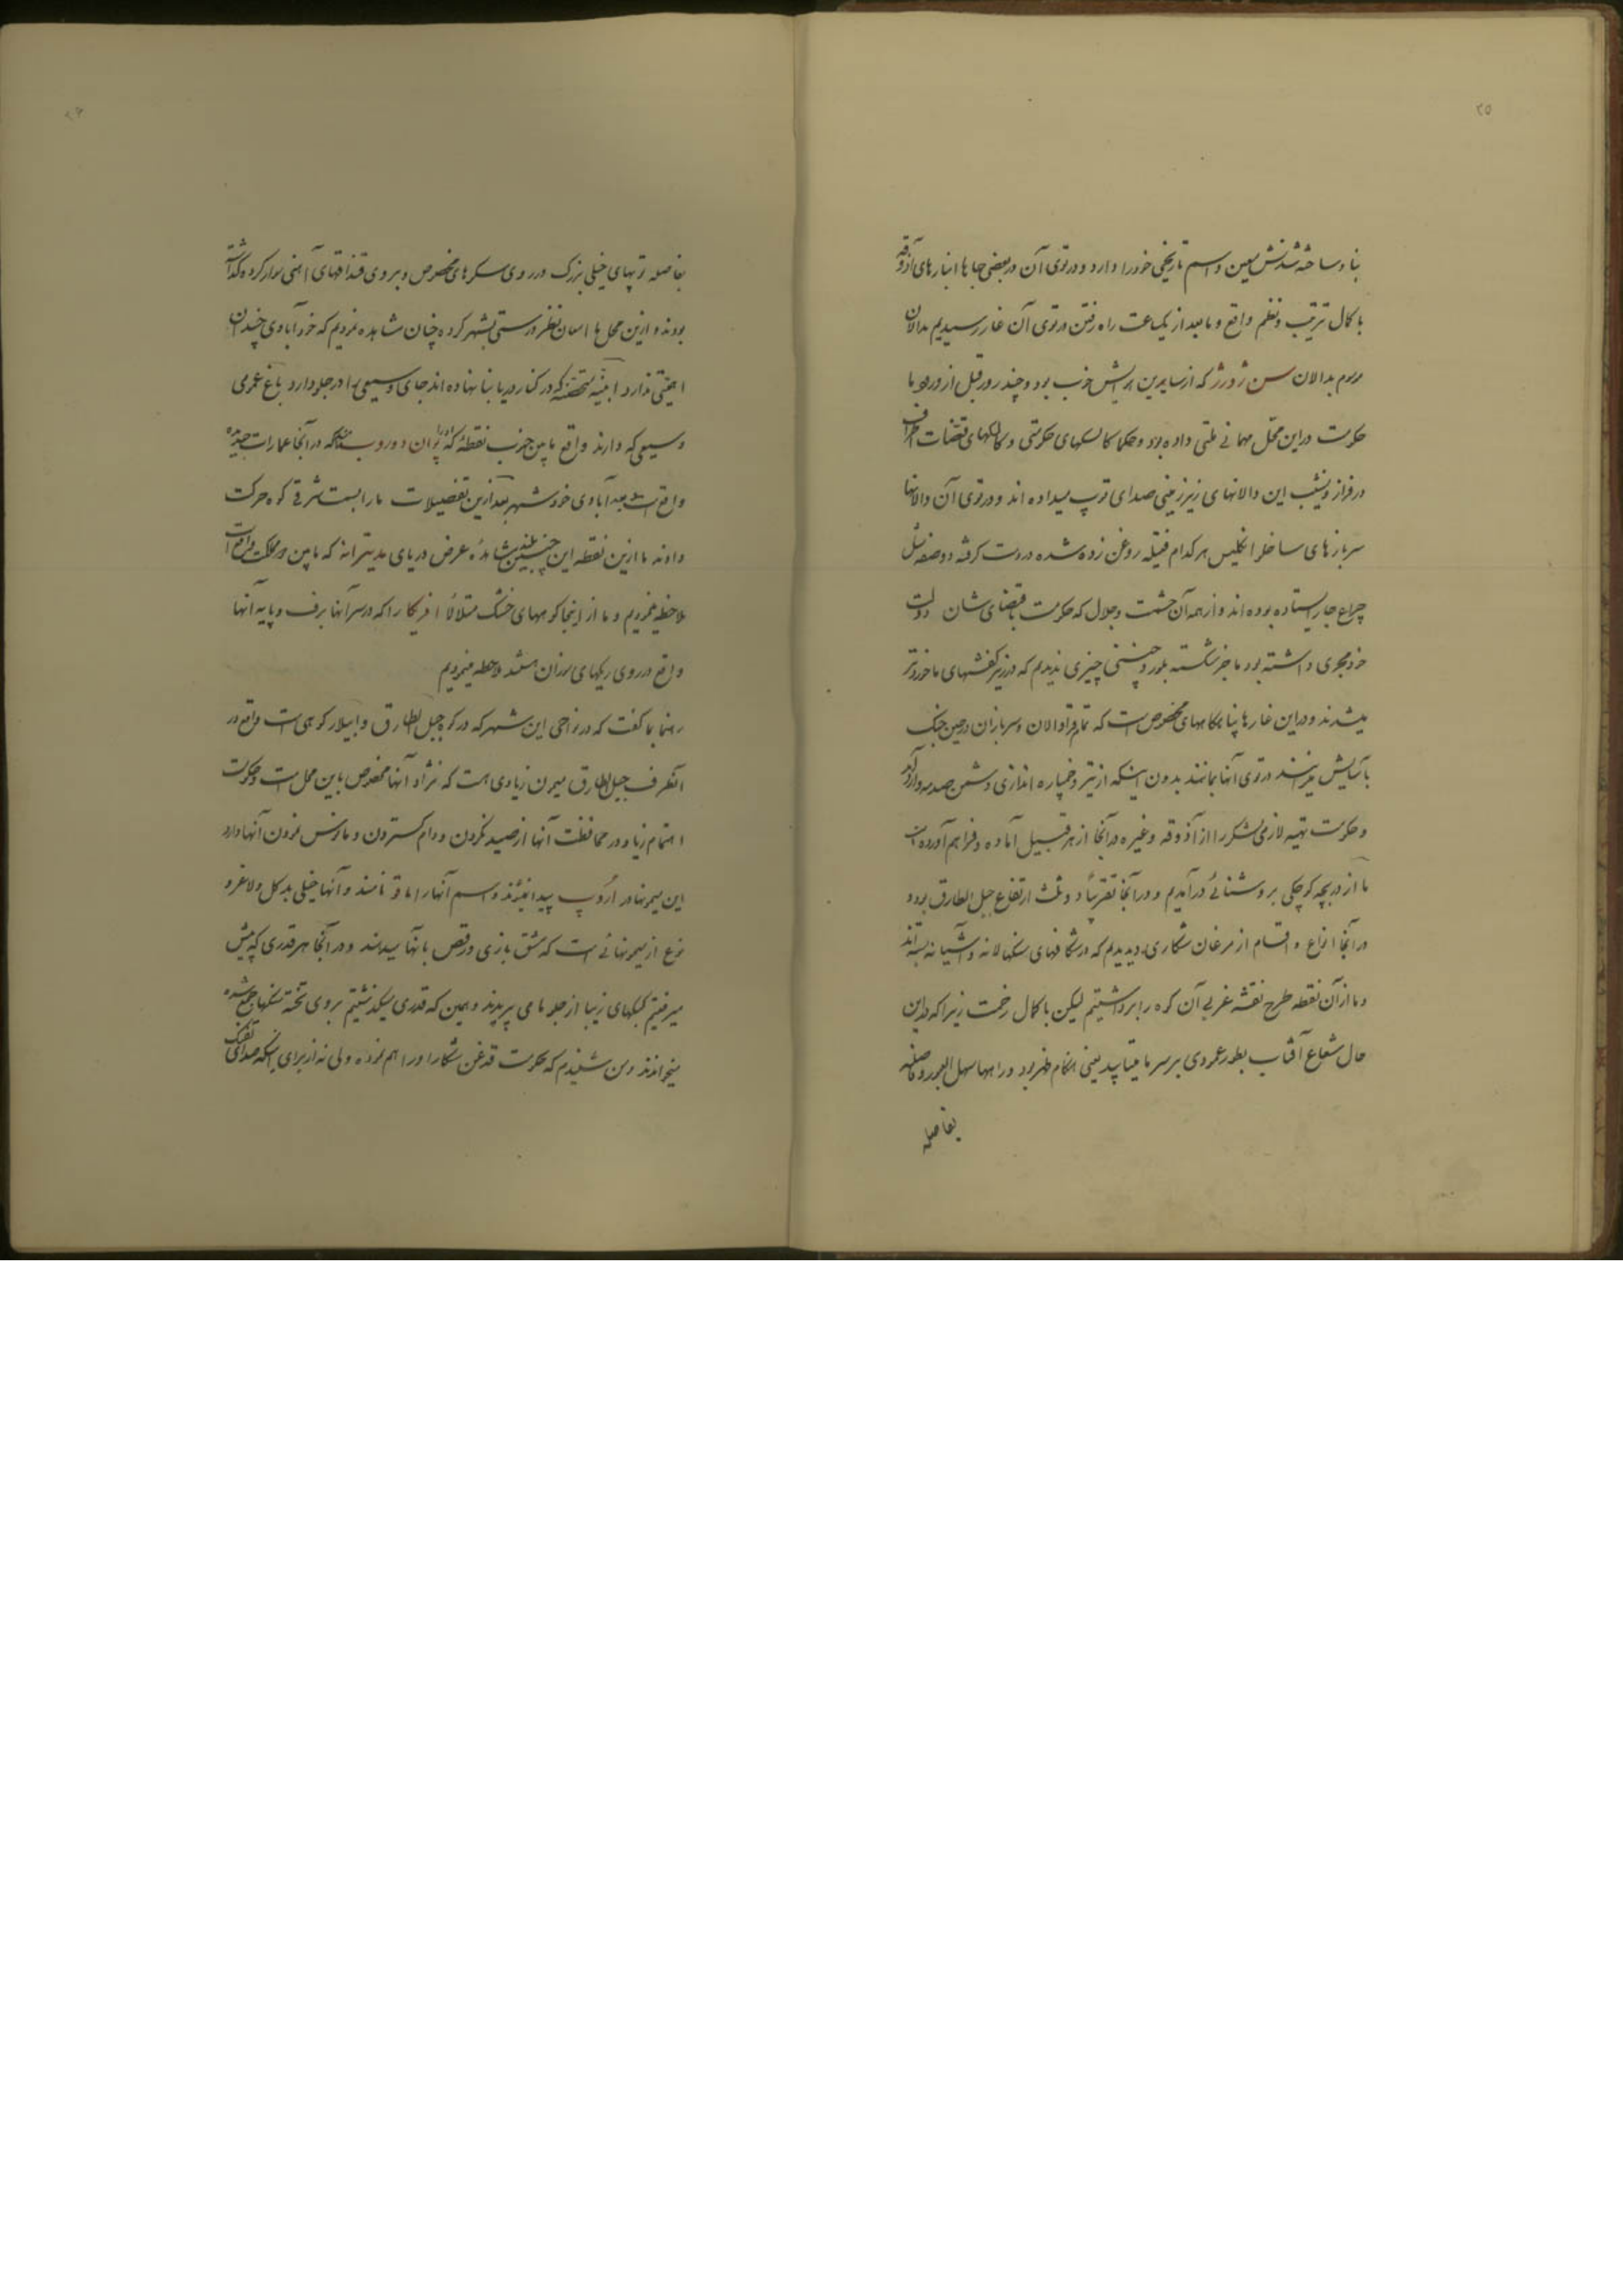 ۲۵
بنا و ساخته شدنش معین و اسم تاریخی خود را دارد و در توی آن در بعضی جاها انبارهای آذوقه
با کمال ترتیب و نظم واقع و ما بعد از یکساعت راه رفتن در توی آن غار رسیدیم بدالان
موسوم بدالان سن ژورژ که از سایرین بهتر خوب بود و چند روز قبل از ورود ما
حکومت در این محل مهمانی ملتی داده بود و حکما کالسکهای حکومتی و کالسکهای
در فراز و نشیب این دالانهای زیرزمینی صدای توپ میداده اند و در توی آن دالانها
سربازهای ساخلو انگلیس هر کدام فتیله روغن زده شده در دست گرفته دو صف مثل
چراغ جار ایستاده بوده اند و از همه آن حشمت و جلال که حکومت باقتضای شان دولت
خود مجری داشته بود ما جز شکسته بلور و چینی چیزی ندیدیم که در زیر کفشهای ما خوردتر
میشدند و در این غارها پناهگاههای مخصوص است که تمام قراولان و سربازان در حین جنگ
بآسایش در توی آنها بمانند بدون اینکه از تیر و خمپاره اندازی دشمن صدمه وارد آید
و حکومت تهیه لازمی لشکر را از آذوقه و غیره در آنجا از هر قبیل آماده و فراهم آورده است
ما از دریچه کوچکی بروشنائی درآمدیم و در آنجا تقریباً دو ثلث ارتفاع جبل الطارق بود و
در آنجا انواع و اقسام از مرغان شکاری دیدیم که در شکافهای سنگها لانه و آشیانه بسته اند
و ما از آن نقطه طرح نقشه غربی آن کوه را برداشتیم لیکن با کمال زحمت زیرا که در این
حال شعاع آفتاب بطور عمودی بر سر ما میتابید یعنی هنگام ظهر بود و راهها سهل العبور و فاصله
بفاصله
۲۶
بفاصله توپهای خیلی بزرگ در روی سکوهای مخصوص و بر روی قنداقهای آهنی سوار کرده گذاشته
بودند و ازین محل ما امعان نظر درستی بشهر کرده چنان مشاهده نمودیم که خود آبادی چندان
اهمیتی ندارد ابنیه که در کنار دریا بنا نهاده اند جای وسیعی را در جلو دارد باغ عمومی
وسیعی که دارند واقع مابین جنوب نقطه که و در آنجا عمارات جدیده
واقع است بعد آبادی خود شهر بعد ازین تفصیلات ما را بسمت شرقی کوه حرکت
دادند ما ازین نقطه باین بلندی عرض دریای مدیترانه که مابین دو مملکت واقع است
ملاحظه نمودیم و ما از اینجا کوههای خشک متلألأ افریکا را که در سر آنها برف و پایه آنها
واقع در روی ریگهای سوزان هستند ملاحظه مینمودیم
رهنما بما گفت که در نواحی این شهر که در کوه جبل الطارق و ابیلا که کوهی است واقع در
آنطرف جبل الطارق میمون زیادی هست که نژاد آنها مخصوص باین محل است و حکومت
اهتمام زیاد در محافظت آنها از صید نکردن و دام نگستردن و مأنوس نمودن آنها دارد
این میمونها در اروپ پیدا نمیشوند و اسم آنها را ماقو نامند و آنها خیلی بدگل و لاغر و
نوع از میمونهائی است که مشق بازی و رقص بآنها میدهند و در آنجا هر قدری که پیش
میرفتیم کبکهای زیبا از جلو ما می پریدند و همین که قدری میگذشتیم بروی تخته سنگها جمع شده
میخواندند و من شنیدم که حکومت قدغن شکار او را هم نموده ولی نه از برای اینکه صدای تفنگ